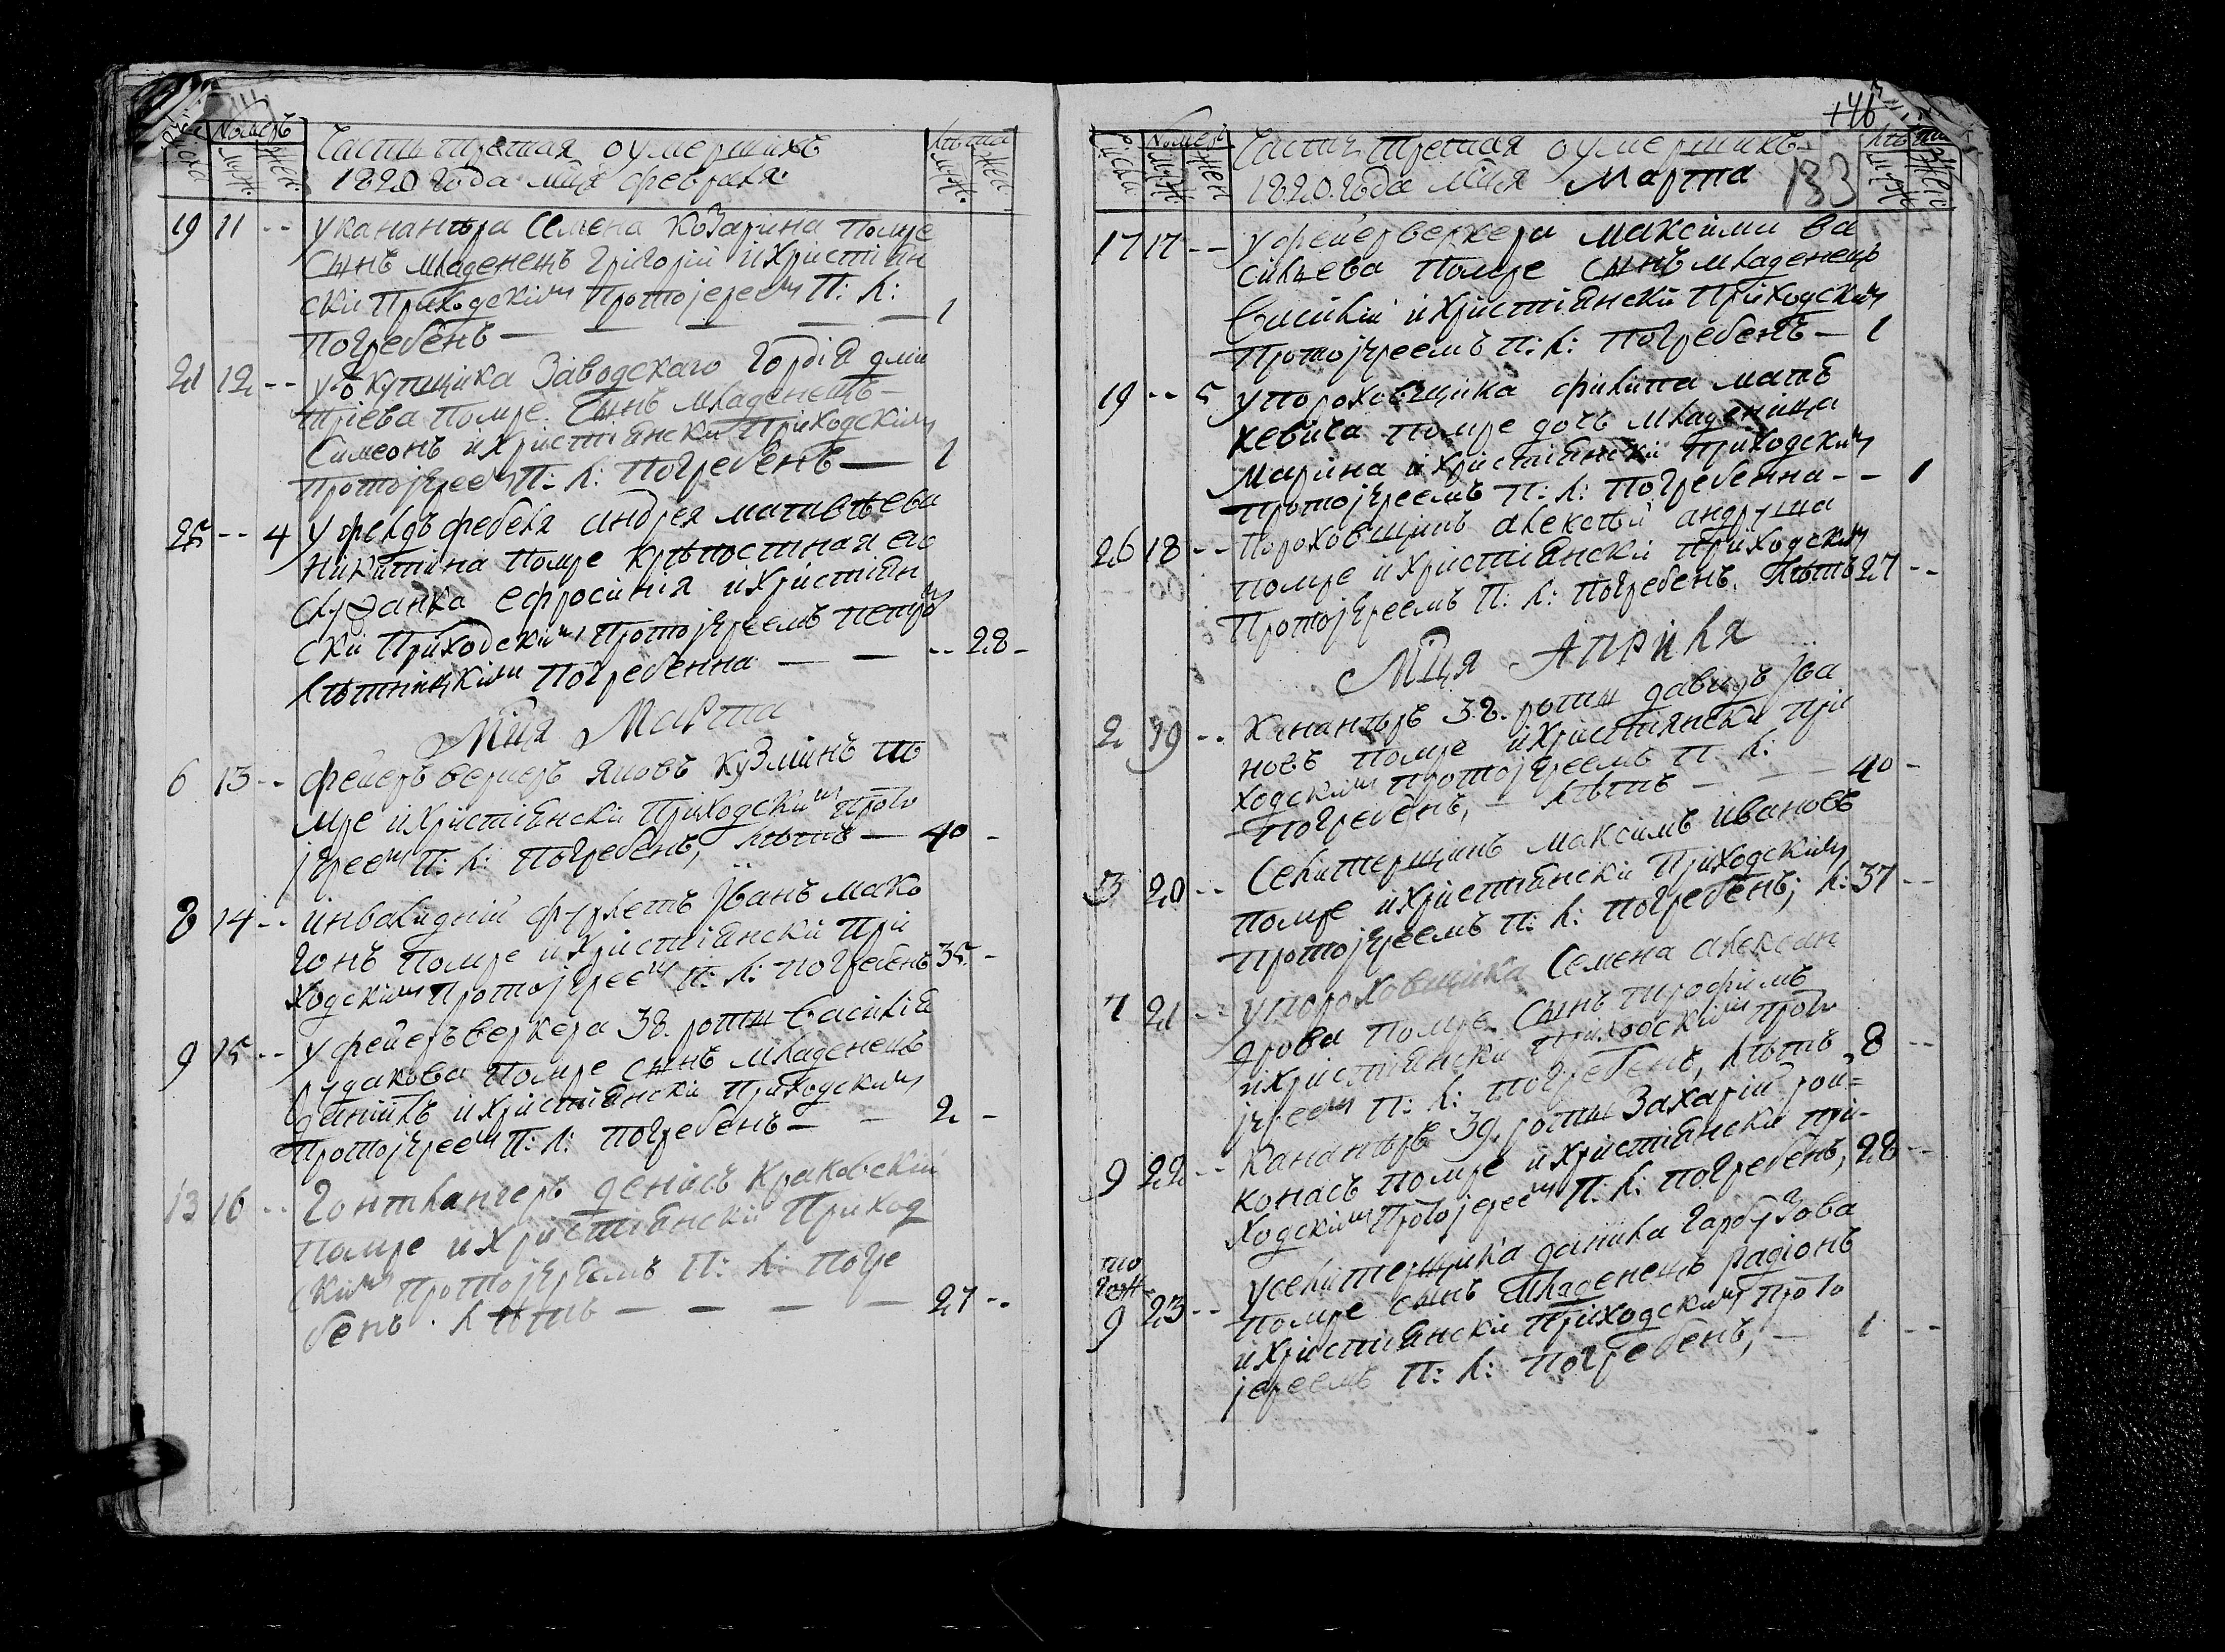 числа Номеръ Часть третая о умершихъ лѣта
муж. жен. 1820 года мца февраля муж. жен.
19 11 -- у кананѣра Семена Козарина помре
сынъ младенецъ Григорій и христіян
ски приходскімъ протоіереемъ П: Л:
погребенъ — — — — 1
21 12 -- у окупщика заводскаго Гордія Дми
тріева помре сынъ младенецъ
Симеонъ и христіянски приходскімъ
протоіереемъ П: Л: погребенъ — 1
25 -- 4 у фелдъфебеля Андрея Матвѣева
Никитина помре крѣпостная его
служанка Ефросинія и христіян
ски приходскімъ протоіереемъ Петромъ
Лѣтницкімъ погребенна — — -- 28 -
Мца Марта
6 13 -- фейерверкеръ Яковъ Кузминъ по
мре и христіянски приходскимъ прото
іереемъ П: Л: погребенъ, лѣтъ — 40 -
8 14 -- инвалидній фурлетъ Іванъ Мако
гонъ помре и христіянски при
ходскімъ протоіереемъ П: Л: погребенъ 35 -
9 15 -- у фейерверкера 38. роты Василія
Рудакова помре сынъ младенецъ
Даніилъ и христіянски приходскимъ
протоіереемъ П: Л: погребенъ — — 2 -
13 16 -- Гонтлангеръ Денисъ Краковскій
помре и христіянски приход
скимъ протоіереемъ П: Л: погре
бенъ. лѣтъ — — — — 27 --
+46
числа Номеръ Часть третая о умершихъ лѣта
муж. жен 1820. года мца Марта 133 муж. жен
17 17 -- у фейерверкера Максима Ва
силіева помре сынъ младенецъ
Василій и христіянски приходскимъ
протоіереемъ П: Л: погребенъ — 1
19 -- 5 у пороховщика Филипа Матѣ
кевича помре дочъ младеница
Марина и христіянски приходскимъ
протоіереемъ П: Л: погребенна -- 1
26 18 -- пороховщикъ Алексѣй Андруща
помре и христіянски приходскимъ
протоіереемъ П: Л: погребенъ. Лѣтъ 27 --
Мца Априля
2 19 -- Кананѣръ 38. роты Давидъ Іва
новъ помре и христіянски при
ходскимъ протоіереемъ П: Л:
погребенъ, — лѣтъ — — — 40 -
3 20 -- Селитерщикъ Максимъ Ивановъ
помре и христіянски приходскимъ
протоіереемъ П: Л: погребенъ; л: 37 --
7 21 -- у пороховщика Семена Алексан
дрова помре сынъ Трофимъ
и христіянски приходскімъ прото
іереемъ П: Л: погребенъ, лѣтъ 8 --
9 22 -- Кананѣръ 39. роты Захарій Рой=
конасъ помре и христіянски при-
ходскімъ протоіереемъ П: Л: погребенъ, 28 --
тогож у селитерщика Даніила Гарбузова
9 23 -- помре сынъ младенецъ Радіонъ
и христіянски приходскимъ прото
іереемъ П: Л: погребенъ, — 1 --